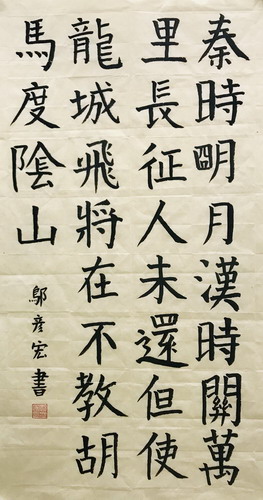 秦時明月漢時關萬
里長征人未還但使
龍城飛將在不教胡
馬度陰山
鄔彦宏書